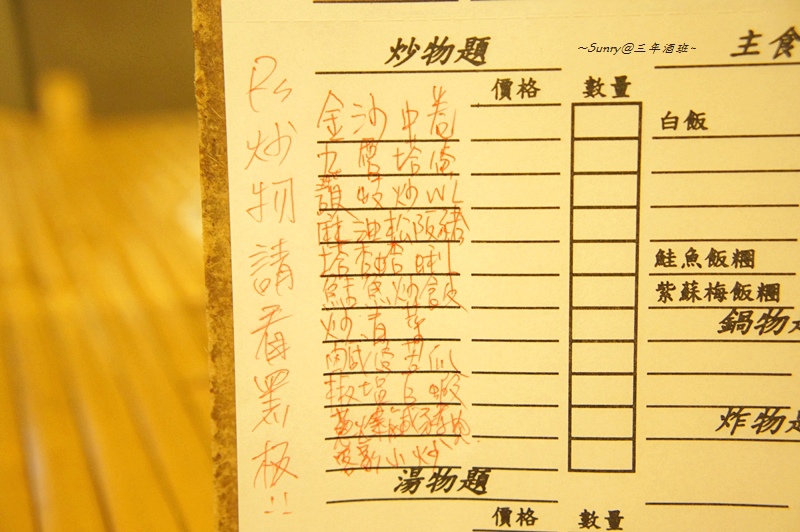 ~Sunry@三年酒班~
炒物題
主食
價格 數量
Ps 炒物請看黑板!!
金沙中卷
九層塔
白飯
炒
麻油松阪豬
塔香蛤
鮭魚炒飯
鮭魚飯糰
紫蘇梅飯糰
炒青菜
鍋物
鹹蛋苦瓜
椒塩白蝦
炸物
客家小炒
湯物題
價格 數量